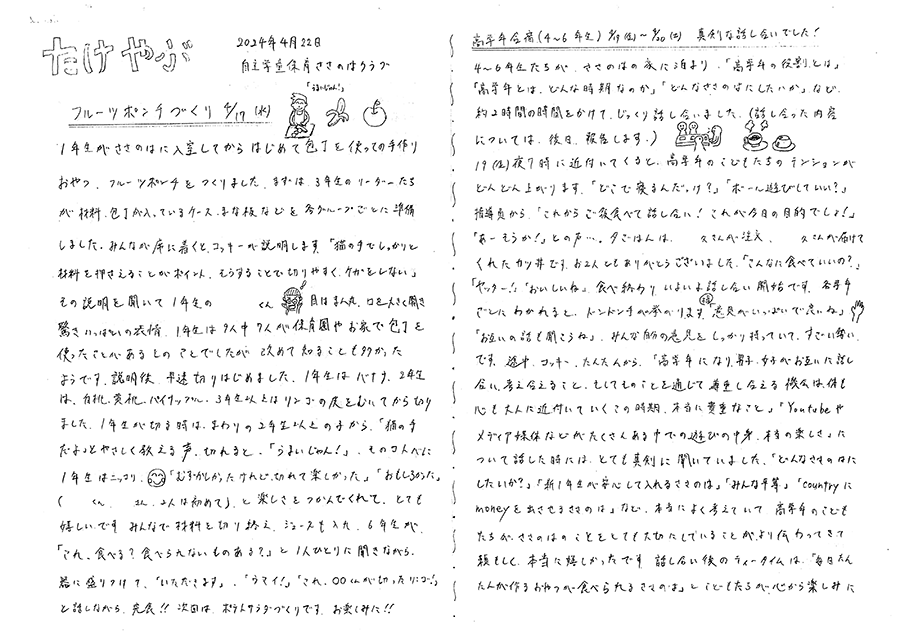 たけやぶ
2024年4月22日
自主学童保育ささのはクラブ
フルーツポンチづくり 4/17(水)
「うまいじゃん!」
1年生がささのはに入室してからはじめて包丁を使っての手作り
おやつ、フルーツポンチをつくりました。まずは、3年生のリーダーたち
が材料、包丁が入っているケース、まな板などを各グループごとに準備
しました。みんなが席に着くと、コッキーが説明します。「猫の手でしっかりと
材料を押さえることがポイント。そうすることで切りやすく、ケガをしない」
その説明を聞いて1年生の くん 目はまん丸、口を大きく開き
驚きいっぱいの表情。1年生は9人中7人が保育園やお家で包丁を
使ったことがあるとのことでしたが、改めて知ることも多かった
ようです。説明後、早速切りはじめました。1年生はバナナ、2年生
は、白桃、黄桃、パイナップル、3年生以上はリンゴの皮をむいてから切り
ました。1年生が切る時は、まわりの2年生以上の子から、「猫の手
だよ」とやさしく教える声。切れると、「うまいじゃん!」、そのコメントに
1年生はニッコリ。「むずかしかったけれど切れて楽しかった」「おもしろかった」
( くん、 さん、2人は初めて)、と楽しさをつかんでくれて、とても
嬉しいです。みんなで材料を切り終え、ジュースも入れ、6年生が、
「これ、食べる?食べられないものある?」と1人ひとりに聞きながら、
器に盛りつけて、「いただきます」、「ウマイ!」「これ、○○くんが切ったリンゴ!」
と話しながら、完食!! 次回は、ポテトサラダづくりです。お楽しみに!!
高学年合宿(4〜6年生) 4/19(金)〜4/20(土) 真剣な話し合いでした!
4〜6年生たちが、ささのはの家に泊まり、「高学年の役割とは」
「高学年とは、どんな時期なのか」「どんなささのはにしたいか」など、
約2時間の時間をかけて、じっくり話し合いました。(話し合った内容
については、後日、報告します。)
19(金)夜7時に近付いてくると、高学年のこどもたちのテンションが
どんどん上がります。「どこで寝るんだっけ?」「ボール遊びしていい?」
指導員から、「これからご飯食べて話し合い!これが今日の目的でしょ!」
「あーそうか!」との声…。夕ごはんは、 さんが注文、 さんが届けて
くれたカツ丼です。お2人ともありがとうございました。「こんなに食べていいの?」
「ヤッター!」「おいしいね」。食べ終わり、いよいよ話し合い開始です。各学年
ごとにわかれると、ドンドン手が挙がります。「意見がいっぱいで良いね」
「お互いの話も聞こうね」。みんな自分の意見をしっかり持っていて、すごい勢い
です。途中、コッキー、たんたんから、「高学年になり、男子、女子がお互いに話し
合い、考え合えること、そしてものごとを通じて尊重し合える機会は、体も
心も大人に近付いていくこの時期、本当に貴重なこと」「Youtubeや
メディア媒体などがたくさんある中での遊びの中身、本当の楽しさ」に
ついて話した時には、とても真剣に聞いていました。「どんなささのはに
したいか?」「新1年生が安心して入れるささのは」「みんな平等」「countryに
moneyを出させるささのは」など、本当によく考えていて、高学年のこども
たちが、ささのはのことをとても大切にしていることがより伝わってきて
頼もしく、本当に嬉しかったです。話し合い後のティータイムは、「毎日たん
たんが作るおやつが食べられるささのは」とこどもたちが、心から楽しみに